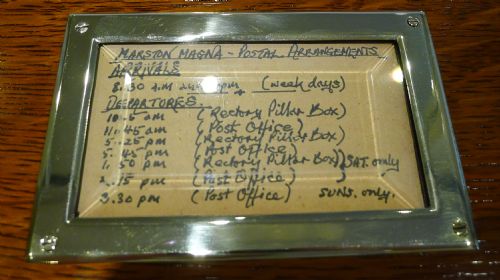 MARSTON MAGNA - POSTAL ARRANGEMENTS
ARRIVALS
8.30 A.M + (week days)
DEPARTURES
10.15 am (Rectory Pillar Box)
11.45 am (Post Office)
5.25 pm (Rectory Pillar Box)
5.45 pm (Post Office)
1.50 pm (Rectory Pillar Box) } SAT. only
2.15 pm (Post Office) }
3.30 pm (Post Office) SUNS. only.